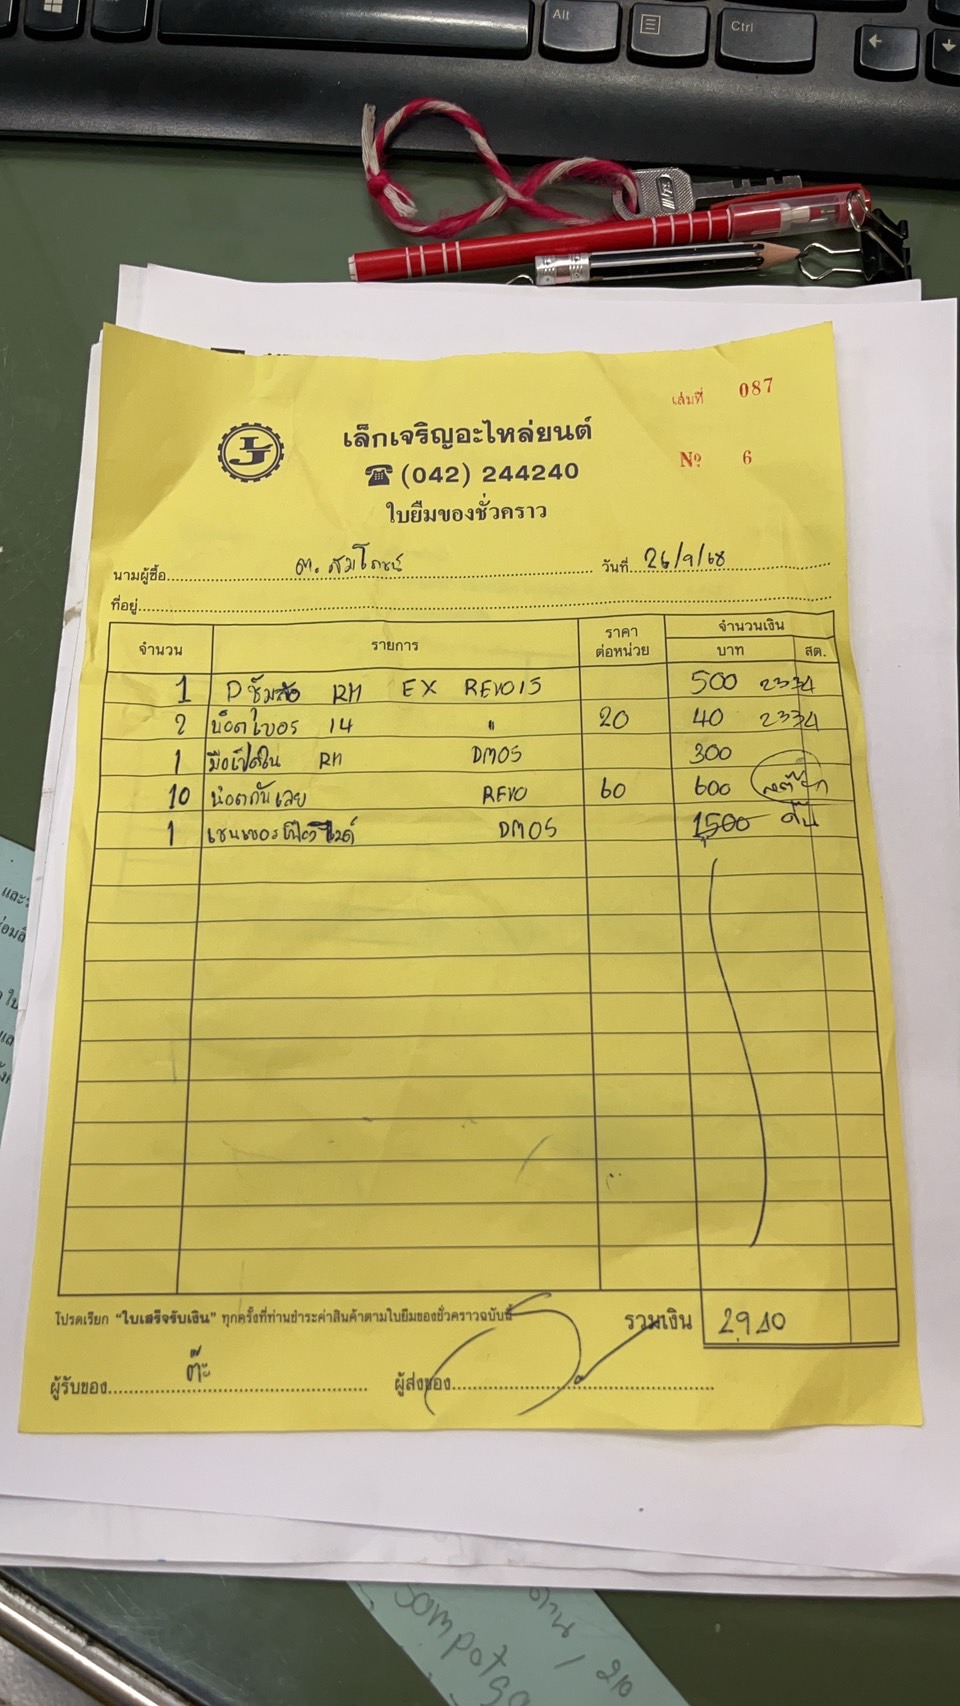 Alt
Ctrl
เล่มที่ 087
LJ
เล็กเจริญอะไหล่ยนต์
(042) 244240
Nº 6
ใบยืมของชั่วคราว
นามผู้ซื้อ วันที่ 26/9/68
ที่อยู่
จำนวน รายการ ราคาต่อหน่วย จำนวนเงิน บาท สต.
1 RH EX REVO15 500 2334
2 น็อตเบอร์ 14 " 20 40 2334
1 มือเปิดใน RH DM05 300
10 REVO 60 600
1 DM05 1,500 คืน
โปรดเรียก "ใบเสร็จรับเงิน" ทุกครั้งที่ท่านชำระค่าสินค้าตามใบยืมของชั่วคราวฉบับนี้
รวมเงิน 2,940
ผู้รับของ ต๊ะ ผู้ส่งของ
และ
ใบ